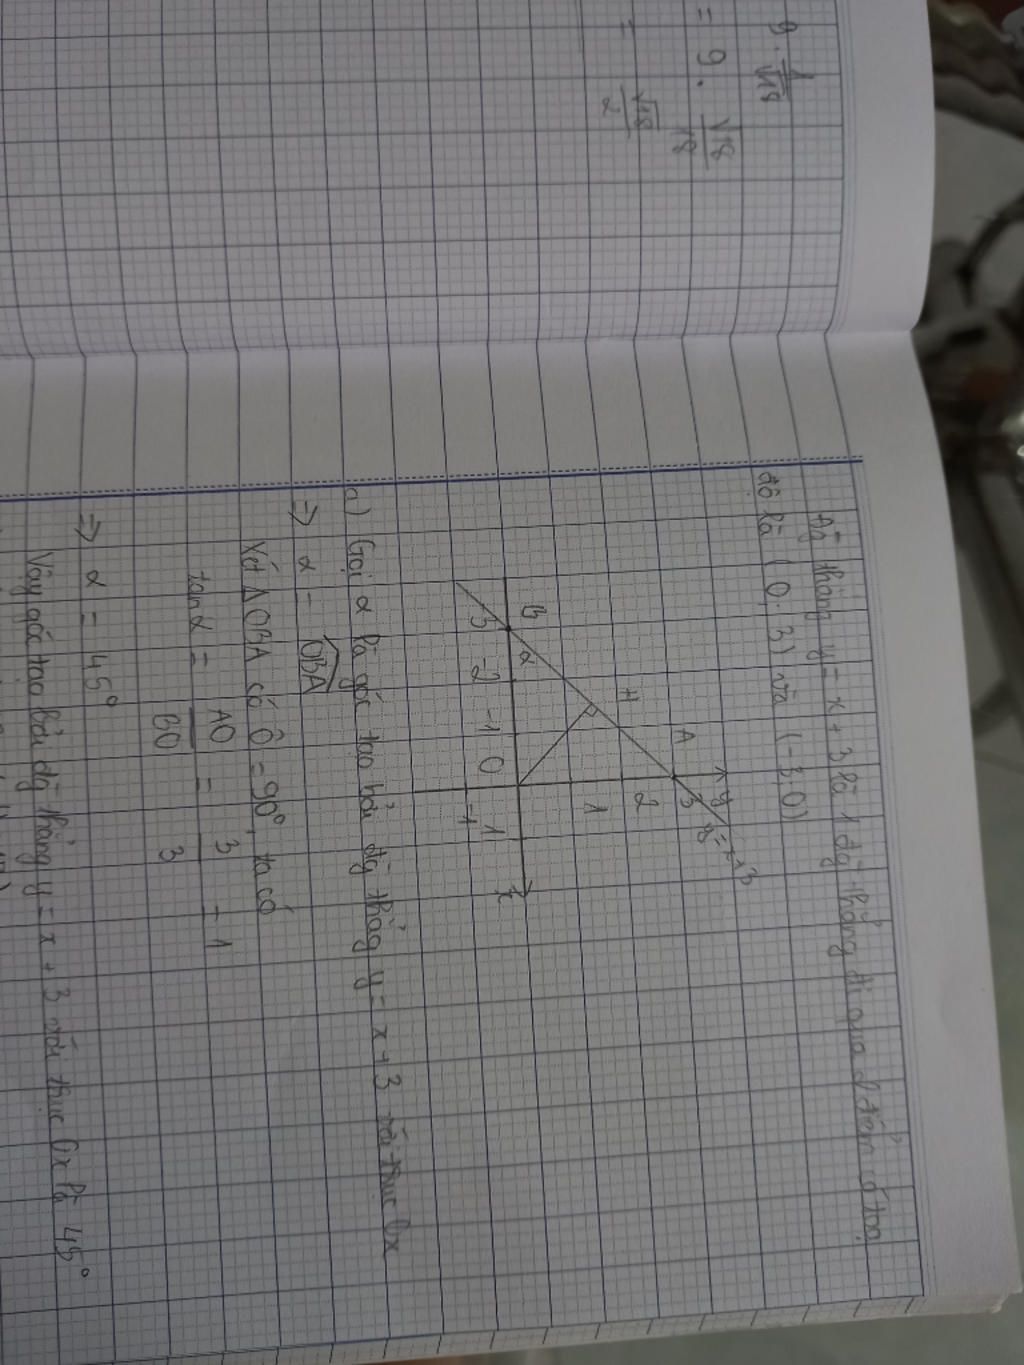 9 . 1/√18
= 9 . √18/18
= √18/2
Đg thẳng y = x + 3 là 1 đg thẳng đi qua 2 điểm có toạ
độ là (0; 3) và (-3, 0)
y
y = x + 3
A
3
H
2
1
B
α
x
-3 -2 -1 0 1
-1
a) Gọi α là góc tạo bởi đg thẳng y = x + 3 với trục Ox
=> α = OBA
Xét Δ OBA có Ô = 90°, ta có
tan α = AO/BO = 3/3 = 1
=> α = 45°
Vậy góc tạo bởi đg thẳng y = x + 3 với trục Ox là 45°